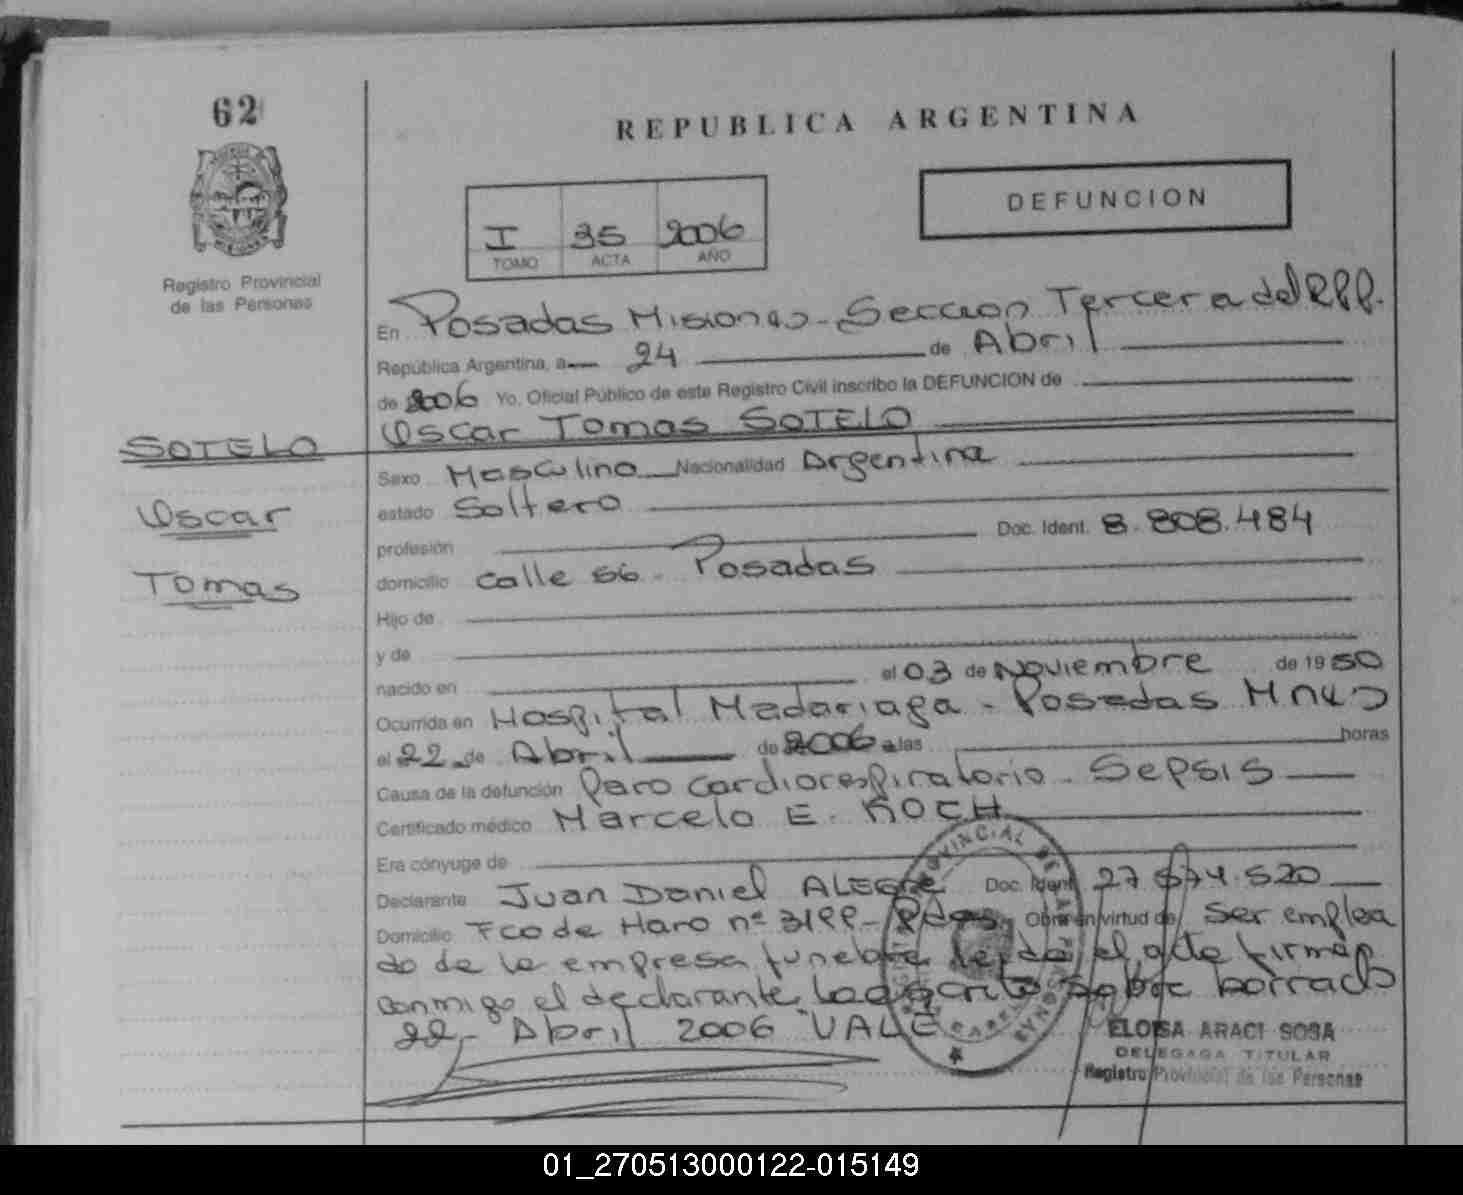 62
REPUBLICA ARGENTINA
DEFUNCION
I 35 2006
TOMO ACTA AÑO
Registro Provincial
de las Personas
En Posadas Misiones - Seccion Tercera del RPP.
República Argentina, a 24 de Abril
de 2006 Yo, Oficial Público de este Registro Civil inscribo la DEFUNCION de
Oscar Tomas SOTELO
SOTELO
Oscar
Tomas
Sexo Masculino Nacionalidad Argentina
estado Soltero
profesión Doc. Ident. 8.808.484
domicilio calle 56 - Posadas
Hijo de
y de
nacido en el 03 de Noviembre de 1950
Ocurrida en Hospital Madariaga - Posadas Mnes
el 22 de Abril de 2006 a las horas
Causa de la defunción Paro cardiorespiratorio - Sepsis
Certificado médico Marcelo E. KOCH
Era cónyuge de
Declarante Juan Daniel ALEGRE Doc. Ident. 27.674.520
Domicilio Fco de Haro nº 3199 - Pdas. Obra en virtud de Ser emplea
do de la empresa funebre leida el acta firma
conmigo el declarante, Lo escrito sobre borrado
22 - Abril 2006 "VALE
PROVINCIAL DE LAS
ELOISA ARACI SOSA
DELEGADA TITULAR
Registro Provincial de las Personas
01_270513000122-015149